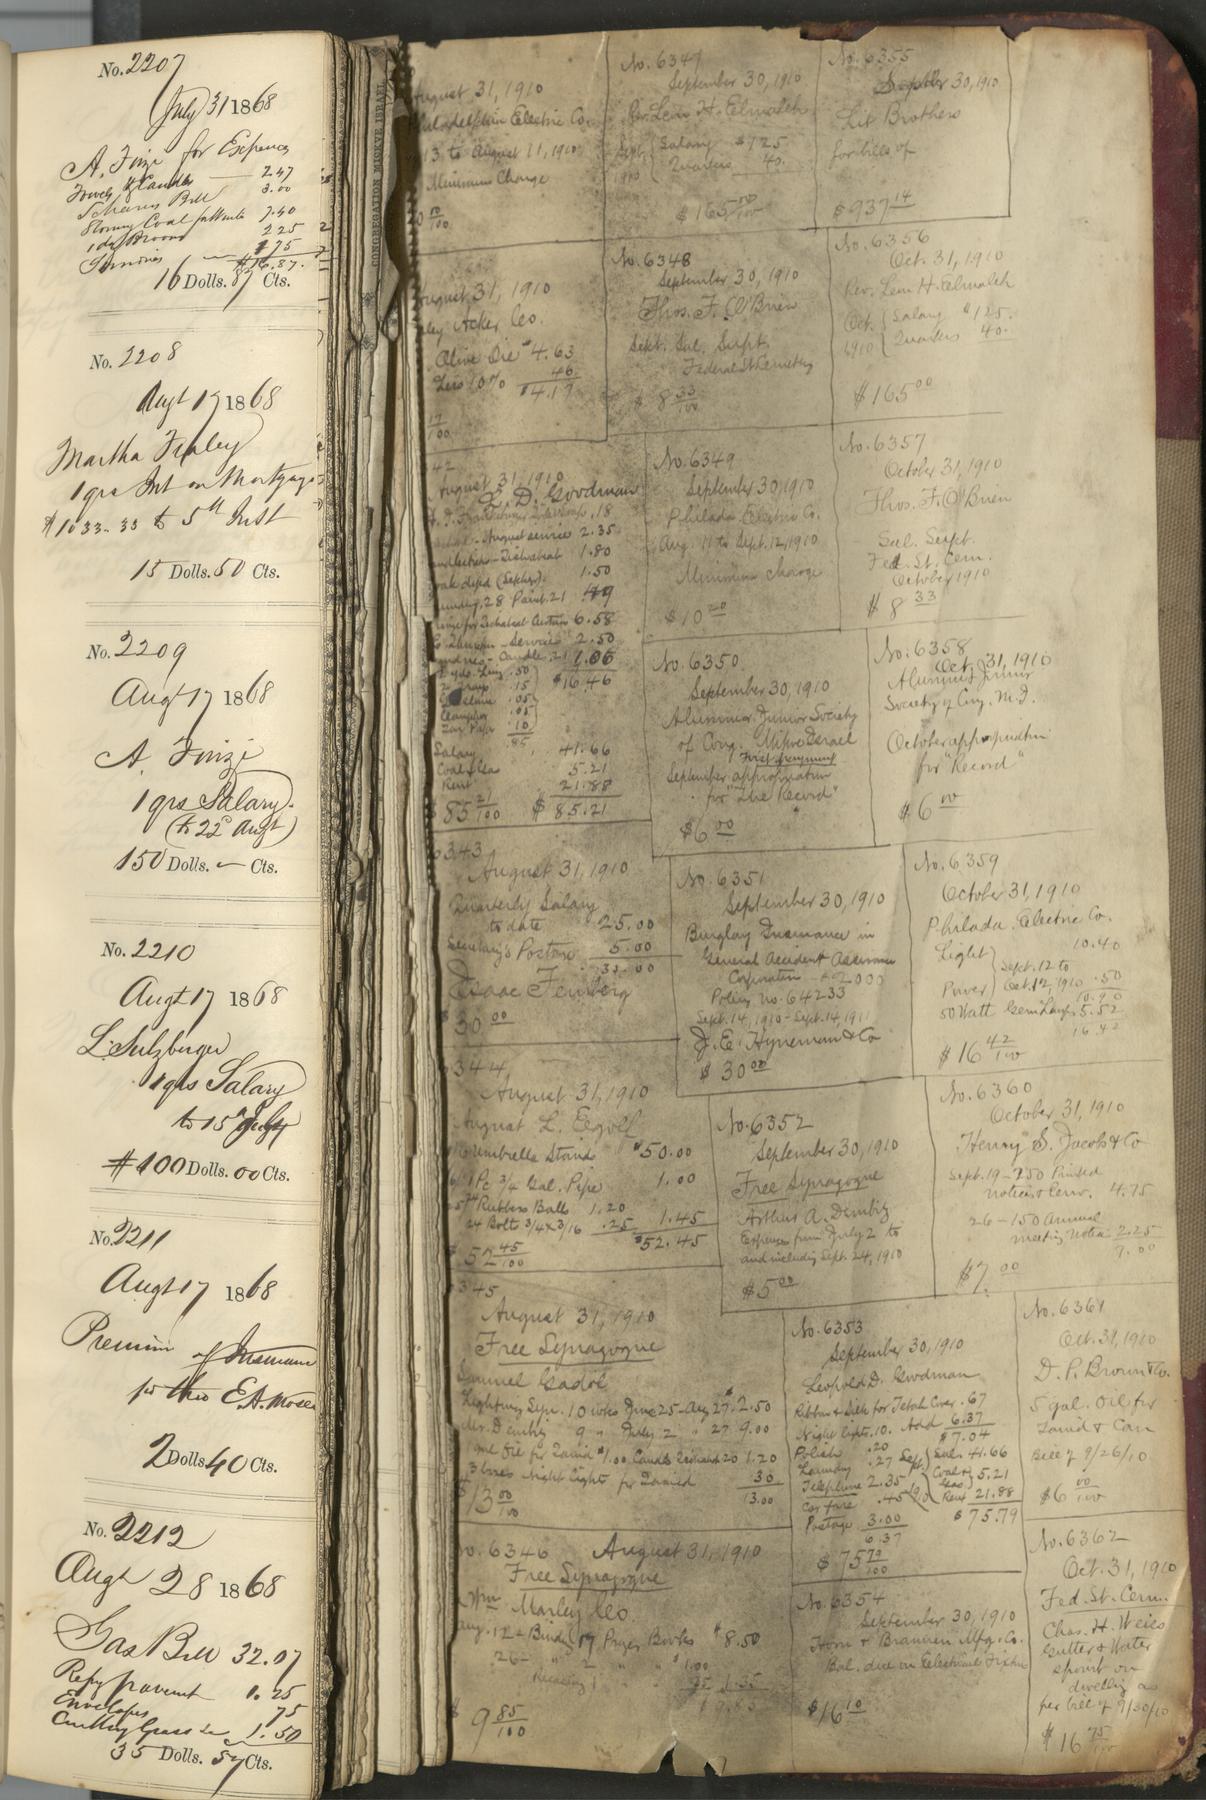 No. 2207
July 31 1868
A. Finzi for Expenses
2.47
3.00
7.40
2 25
1 75
$16.87.
16 Dolls. 87 Cts.
No. 2208
Augt 17 1868
Martha Fraley
1 qrs Int on Mortgage
$1033.33 to 5th Inst
15 Dolls. 50 Cts.
No. 2209
Augt 17 1868
A. Finzi
1 qrs Salary
(to 22d Augt)
150 Dolls. — Cts.
No. 2210
Augt 17 1868
L. Sulzberger
1 qrs Salary
to 15 July
$100 Dolls. 00 Cts.
No. 2211
Augt 17 1868
Premium of Insurance
E.A. Mose
2 Dolls 40 Cts.
No. 2212
Augt 28 1868
Gas Bill 32.07
Repg pavement 1.25
Envelopes 75
Cutting Grass 1.50
35 Dolls. 57 Cts.
CONGREGATION MICKVE ISRAEL
August 31, 1910
Philadelphia Electric Co.
13 to August 11, 1910
Minimum Charge
August 31, 1910
Acker Co.
Olive Oil $4.63
Less 10% 46
$4.17
17/100
42
August 31, 1910
L. D. Goodman
.18
August service 2.35
1.80
1.50
Laundry .28 Paint .21 .49
6.58
Service 2.50
Candle .21
$16.46
.50
.15
.05
.05
.10
.85
Salary 41.66
Coal & Gas 5.21
Rent 21.88
$85 21/100 $85.21
6343
August 31, 1910
Quarterly Salary
to date 25.00
Secretary's Postage 5.00
30.00
Isaac Feinberg
30 00
344
August 31, 1910
August L.
Umbrella Stands $50.00
1 Pc 3/4 Gal. Pipe 1.00
Rubber Balls 1.20
24 Bolts 3/4 x 3/16 .25 1.45
$52.45
52 45/100
345
August 31, 1910
Free Synagogue
Samuel Gadol
Lighting Syn. 10 wks June 25-Aug 27 $2.50
9 " July 2 " 27 9.00
1.20
3 boxes Night Lights for Tamid 30
13.00
$13 00/100
No. 6346 August 31, 1910
Free Synagogue
Wm Marley Co.
Aug. 12- Bindg 17 Prayer Books $8.50
26- 2 " " $1.00
1.35
9.85
9 85/100
No. 6347
September 30, 1910
Rev. Leon H. Elmaleh
Sept. 1910 Salary $125
Quarters 40.
$165 00/100
No. 6348
September 30, 1910
Thos. F. O'Brien
Sept. Sal. Supt.
Federal St Cemetery
$ 8 33/100
No. 6349
September 30, 1910
Philada Electric Co.
Aug. 11 to Sept. 12, 1910
Minimum charge
$10
No. 6350
September 30, 1910
Alumnia Junior Society
of Cong. Mikve Israel
First payment
September appropriation
for "The Record"
$6 00
No. 6351
September 30, 1910
Burglary Insurance in
General Accident Assurance
Corporation - $2000
Policy No. 64233
Sept. 14, 1910 - Sept. 14, 1911
J. E. Hyneman & Co
$ 30 00
No. 6352
September 30, 1910
Free Synagogue
Arthur A. Dembitz
Expenses from July 2 to
and including Sept. 24, 1910
$5 00
No. 6353
September 30, 1910
Leopold D. Goodman
Ribbon & Silk for Tebah Cover .67
Night lights .10. Add 6.37
$7.04
Polish .20
Laundry .27 Sept. Sal. 41.66
Telephone 2.35 Coal & Gas 5.21
Car fare .45 Rent 21.88
Postage 3.00 $75.79
6.37
$ 75 79/100
No. 6354
September 30, 1910
Horn & Brannen Mfg. Co.
Bal. due on Electrical Fixtures
$16 10
No. 6355
Septbr 30, 1910
Lit Brothers
for bills of
$937 14
No. 6356
Oct. 31, 1910
Rev. Leon H. Elmaleh
Oct. 1910 Salary $125.
Quarters 40.
$165 00
No. 6357
October 31, 1910
Thos. F. O'Brien
Sal. Supt.
Fed. St. Cem.
October 1910
$ 8 33
No. 6358
Oct. 31, 1910
Alumnia Junior
Society of Cong. M. I.
October appropriation
for "Record"
$6 00
No. 6359
October 31, 1910
Philada. Electric Co.
Light 10.40
Sept. 12 to
Power Oct. 12, 1910 .50
10.90
50 Watt Gem Lamps 5.52
16.42
$16 42/100
No. 6360
October 31, 1910
Henry S. Jacobs & Co
Sept. 19 - 250 Printed
notices & Env. 4.75
26 - 150 Annual
meeting notices 2.25
7.00
$7. 00
No. 6361
Oct. 31, 1910
D. P. Brown & Co.
5 gal. Oil for
Tamid & Can
Bill of 9/26/10
$6 00/100
No. 6362
Oct. 31, 1910
Fed. St. Cem.
Chas. H. Weiss
Gutter & Water
spout on
dwelling as
per bill of 9/30/10
$ 16 75/100